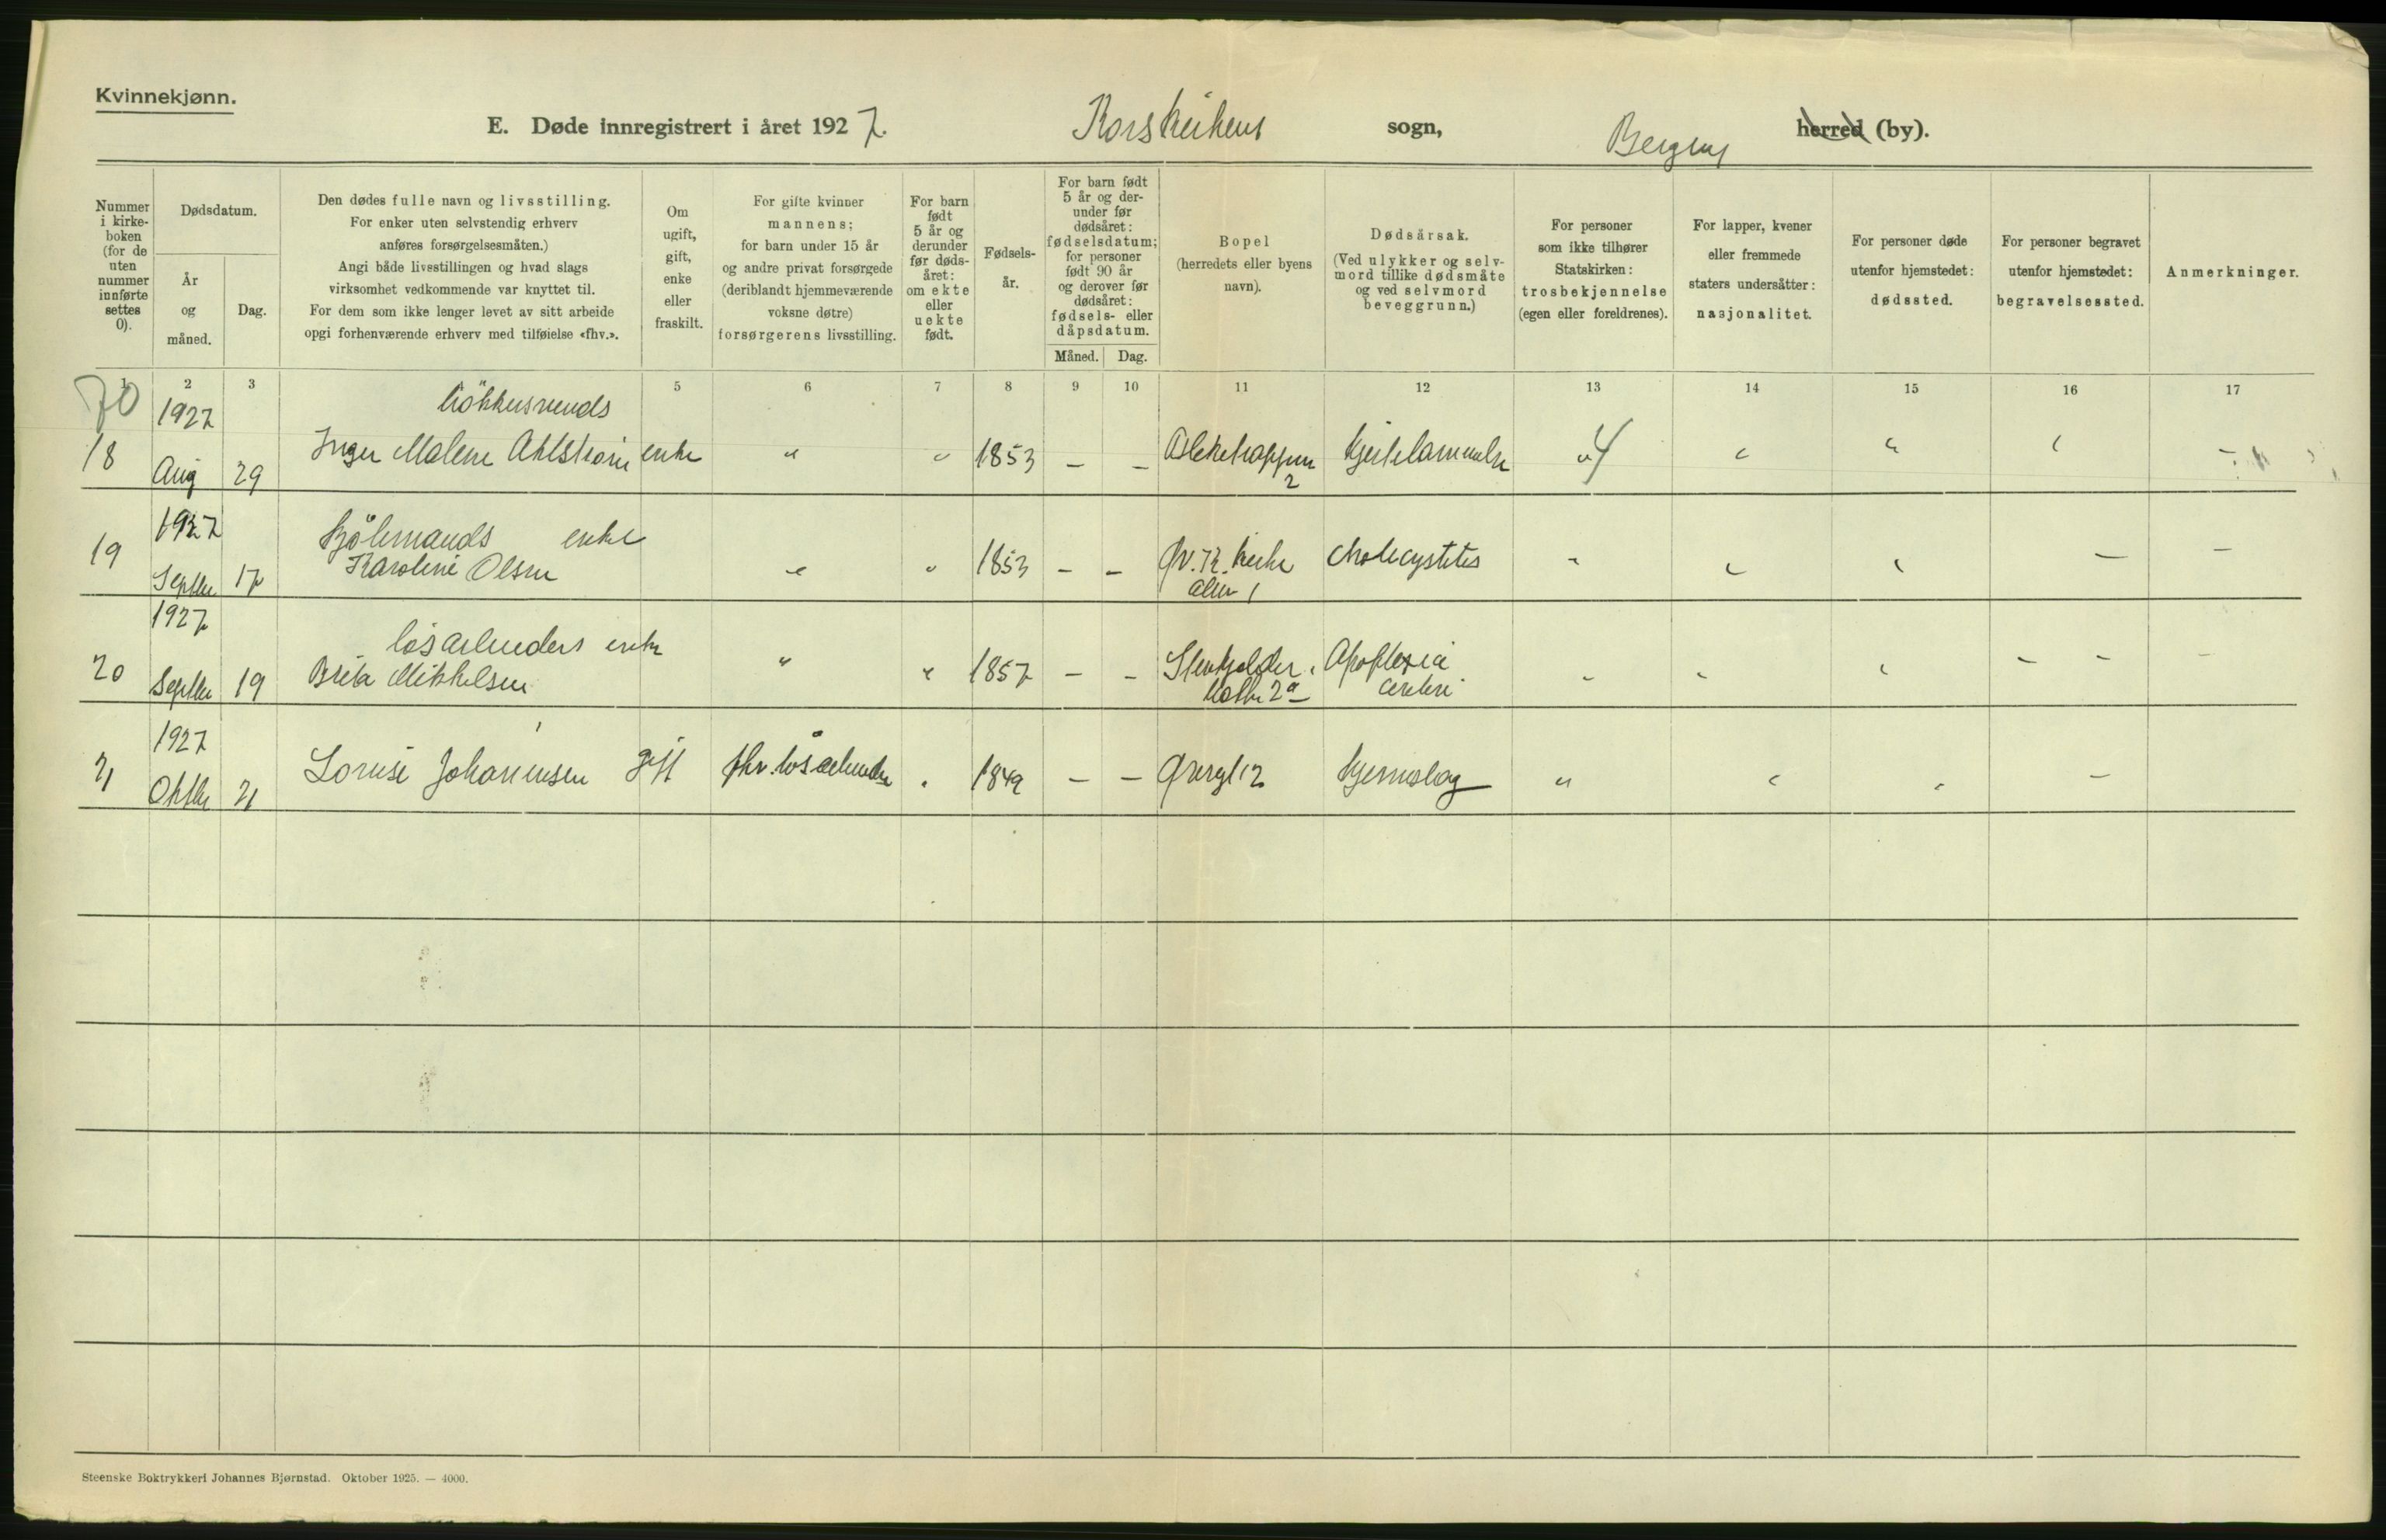 Kvinnekjønn.
E. Døde innregistrert i året 1927. Korskirkens sogn, Bergen herred (by).
Nummer i kirke-boken (for de uten nummer innførte settes 0).
Dødsdatum.
År og måned.
Dag.
Den dødes fulle navn og livsstilling.
For enker uten selvstendig erhverv
anføres forsørgelsesmåten.)
Angi både livsstillingen og hvad slags
virksomhet vedkommende var knyttet til.
For dem som ikke lenger levet av sitt arbeide
opgi forhenværende erhverv med tilføielse «fhv.».
Om ugift, gift, enke eller fraskilt.
For gifte kvinner
mannens;
for barn under 15 år
og andre privat forsørgede
(deriblandt hjemmeværende
voksne døtre)
forsørgerens livsstilling.
For barn født 5 år og derunder før døds-året: om ekte eller uekte født.
Fødsels-år.
For barn født 5 år og der-under før dødsåret: fødselsdatum; for personer født 90 år og derover før dødsåret: fødsels- eller dåpsdatum.
Måned. Dag.
Bopel
(herredets eller byens
navn).
Dødsårsak.
(Ved ulykker og selv-
mord tillike dødsmåte
og ved selvmord
beveggrunn.)
For personer
som ikke tilhører
Statskirken:
trosbekjennelse
(egen eller foreldrenes).
For lapper, kvener
eller fremmede
staters undersåtter:
nasjonalitet.
For personer døde
utenfor hjemstedet:
dødssted.
For personer begravet
utenfor hjemstedet:
begravelsessted.
Anmerkninger.
1 2 3 5 6 7 8 9 10 11 12 13 14 15 16 17
70
1927
18 Aug 29 Inger Malene Ahlstrøm enke " " 1853 – – Aslaktrappen 2 Hjertelammelse " 4 " " " –
1927 enke
19 Septbr 17 Karoline Olsen " " 1853 – – Kr. K. kirke alm 1 cholecystitis " " " – –
1927 løsarbeiders enke
20 Septbr 19 Brita Mikkelsen " " 1857 – – Stenkjelder 2a Apoplexia cerebri " " " – – –
1927
21 Oktbr 21 Lovise Johannensen gift fhv. løsarbeider " 1849 – – 12 Hjerneslag " " " –
Steenske Boktrykkeri Johannes Bjørnstad. Oktober 1925. — 4000.